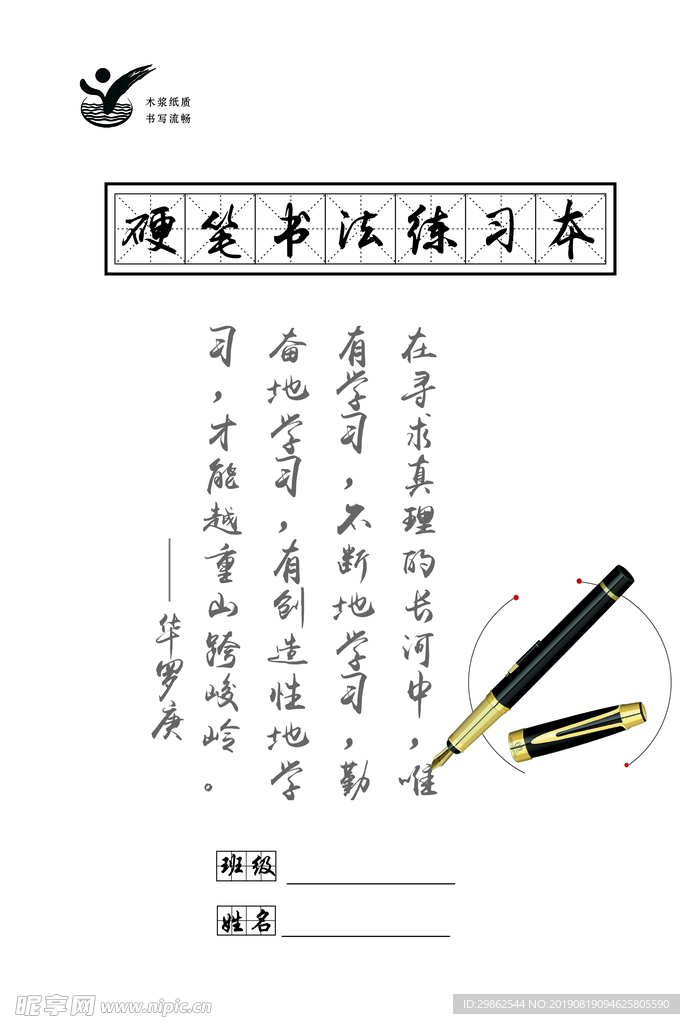 木浆纸质
书写流畅
硬笔书法练习本
在寻求真理的长河中，唯
有学习，不断地学习，勤
奋地学习，有创造性地学
习，才能越重山跨峻岭。
——华罗庚
班级
姓名
昵享网 www.nipic.cn
ID:29862544 NO:20190819094625805590